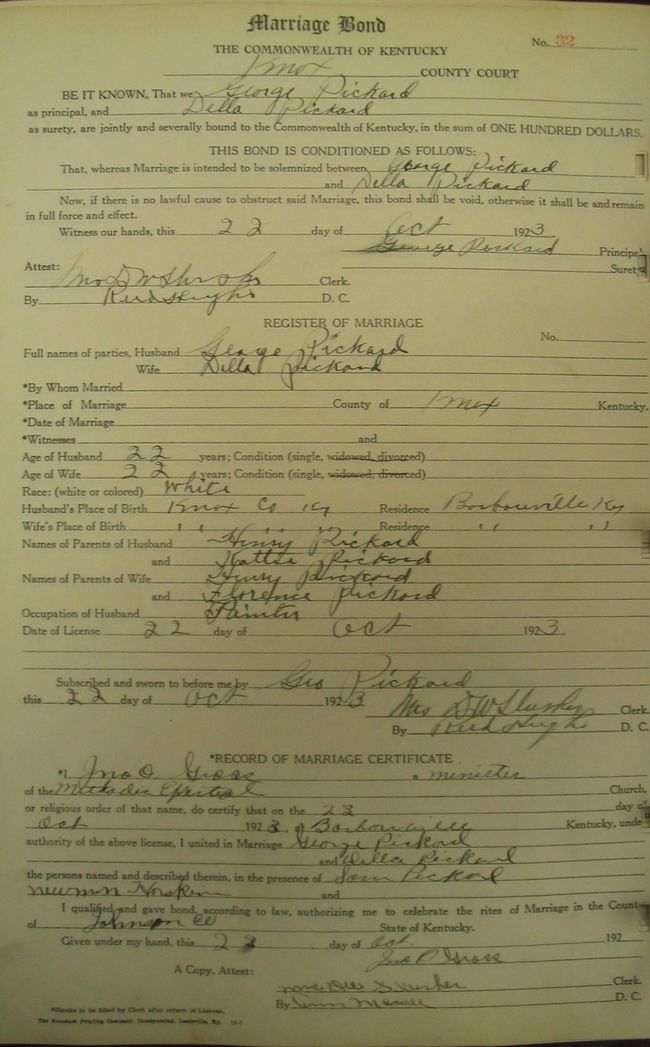 Marriage Bond
THE COMMONWEALTH OF KENTUCKY
No. 32
Knox COUNTY COURT
BE IT KNOWN, That we George Pickard
as principal, and Della Pickard
as surety, are jointly and severally bound to the Commonwealth of Kentucky, in the sum of ONE HUNDRED DOLLARS.
THIS BOND IS CONDITIONED AS FOLLOWS:
That, whereas Marriage is intended to be solemnized between George Pickard
and Della Pickard
Now, if there is no lawful cause to obstruct said Marriage, this bond shall be void, otherwise it shall be and remain
in full force and effect.
Witness our hands, this 22 day of Oct 1923
George Pickard Principal
Surety
Attest:
Clerk.
By D. C.
REGISTER OF MARRIAGE
No.
Full names of parties, Husband George Pickard
Wife Della Pickard
*By Whom Married
*Place of Marriage County of Knox Kentucky.
*Date of Marriage
*Witnesses and
Age of Husband 22 years; Condition (single, widowed, divorced)
Age of Wife 22 years; Condition (single, widowed, divorced)
Race: (white or colored) White
Husband's Place of Birth Knox Co Ky Residence Barbourville Ky
Wife's Place of Birth " " " " Residence " " " "
Names of Parents of Husband Henry Pickard
and Hattie Pickard
Names of Parents of Wife Henry Pickard
and Florence Pickard
Occupation of Husband Painter
Date of License 22 day of Oct 1923.
Subscribed and sworn to before me by Geo Pickard
this 22 day of Oct 1923
Mrs D W Slusher Clerk.
By D. C.
*RECORD OF MARRIAGE CERTIFICATE.
*I, Jno O. Gross a minister
of the Church,
or religious order of that name, do certify that on the 22 day of
Oct 1923, at Barbourville Kentucky, unde
authority of the above license, I united in Marriage George Pickard
and Della Pickard
the persons named and described therein, in the presence of Sam Pickard
and
I qualified and gave bond, according to law, authorizing me to celebrate the rites of Marriage in the Count
of Johnson Co State of Kentucky.
Given under my hand, this 22 day of Oct. 192
Jno O Gross
A Copy, Attest:
Mrs D W Slusher Clerk.
By D. C.
*Blanks to be filled by Clerk after return of License.
The Standard Printing Company, Incorporated, Louisville, Ky.